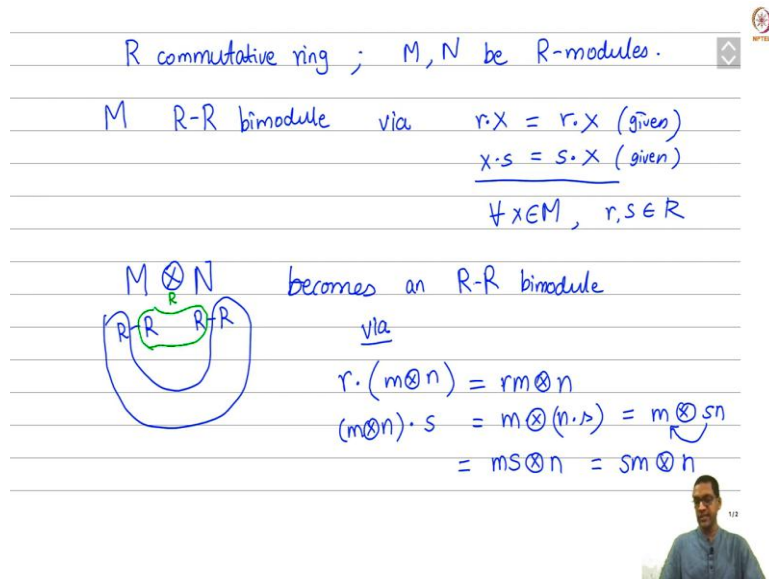 R commutative ring ; M, N be R-modules.
M R-R bimodule via r.x = r.x (given)
x.s = s.x (given)
∀ x∈M, r,s∈R
M ⊗ N becomes an R-R bimodule
R
R-R R-R
via
r.(m⊗n) = rm⊗n
(m⊗n).s = m⊗(n.s) = m⊗sn
= ms⊗n = sm⊗n
NPTEL
1/2